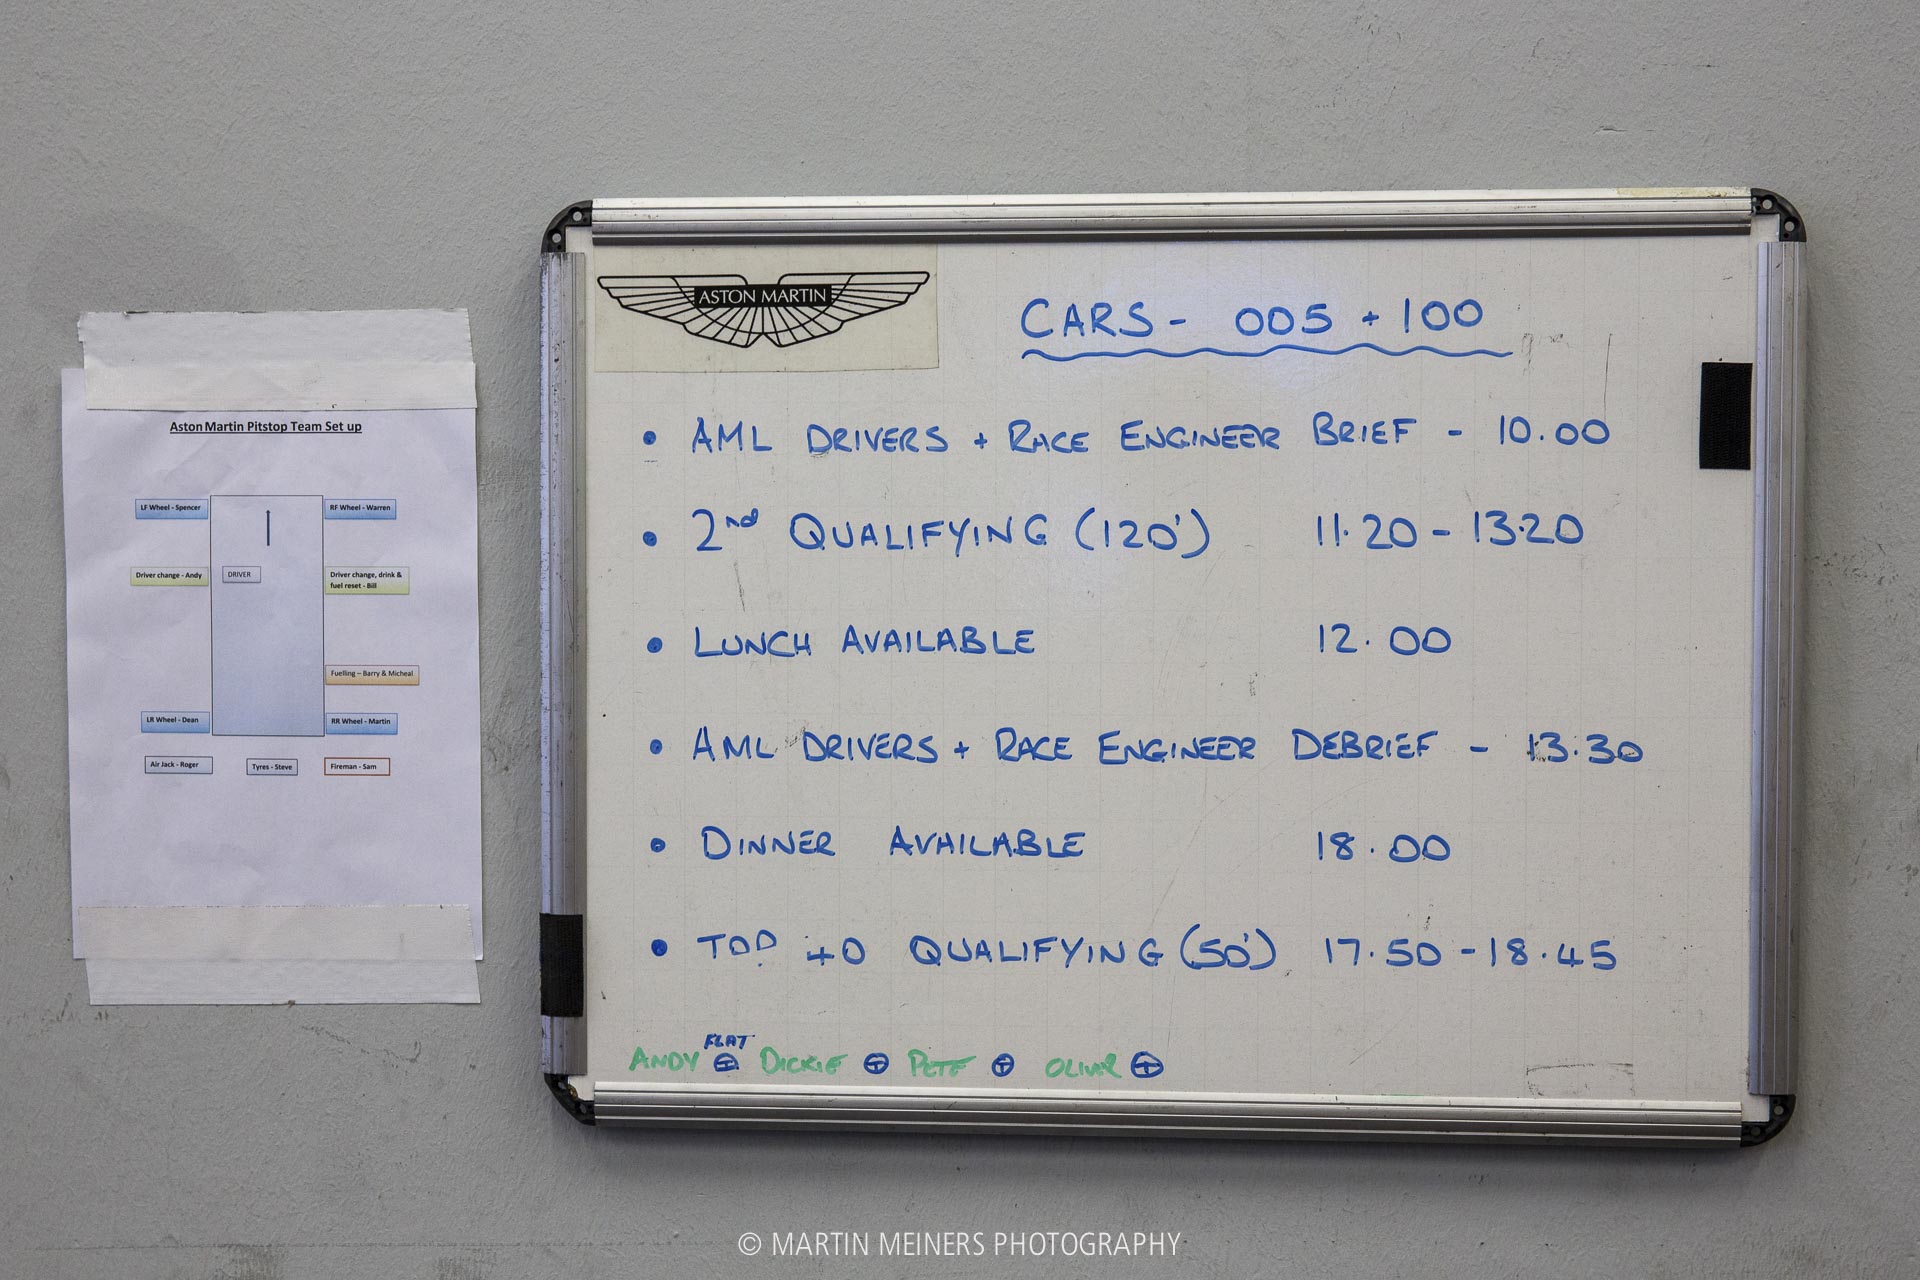 Aston Martin Pitstop Team Set up
LF Wheel - Spencer
RF Wheel - Warren
Driver change - Andy
DRIVER
Driver change, drink &
fuel reset - Bill
Fuelling – Barry & Micheal
LR Wheel - Dean
RR Wheel - Martin
Air Jack - Roger
Tyres - Steve
Fireman - Sam
ASTON MARTIN
CARS - 005 + 100
• AML DRIVERS + RACE ENGINEER BRIEF - 10.00
• 2nd QUALIFYING (120') 11.20 - 13.20
• LUNCH AVAILABLE 12.00
• AML DRIVERS + RACE ENGINEER DEBRIEF - 13.30
• DINNER AVAILABLE 18.00
• TOP 40 QUALIFYING (50') 17.50 - 18.45
FLAT
ANDY DICKIE PETE OLIVER
© MARTIN MEINERS PHOTOGRAPHY